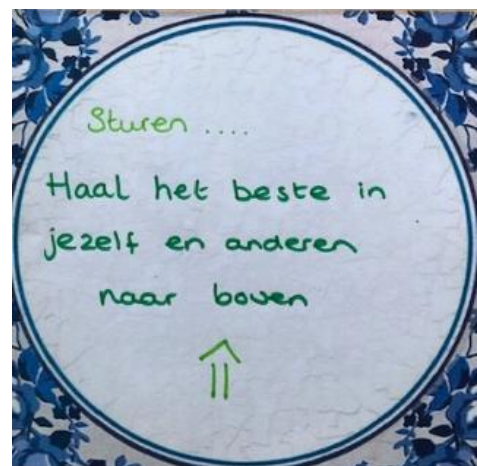 Sturen ....
Haal het beste in
jezelf en anderen
naar boven